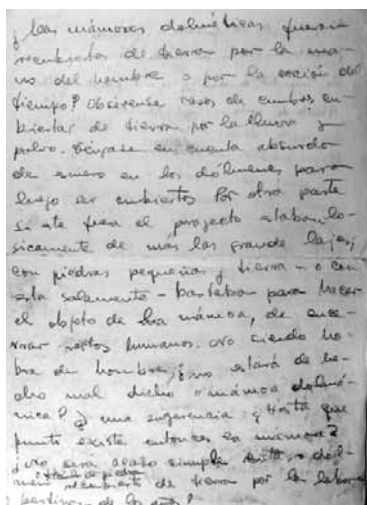 ¿Las mámoas dolménicas fueron
recubiertas de tierra por la ma-
no del hombre o por la acción del
tiempo? Obsérvense casos de cumbres cu-
biertas de tierra por la lluvia y
polvo. Téngase en cuenta absurdo
de esmero en los dólmenes para
luego ser cubiertos Por otra parte
si este fuera el proyecto estaban ló-
gicamente de más las grande lajes;
con piedras pequeñas y tierra - o con
esta solamente - bastaban para hacer
el objeto de la mámoa, de ence-
rrar restos humanos. No siendo ho-
bra de hombre, ¿no estará de he-
cho mal dicho "mámoa dolmé-
nica? Y una sugerencia ¿Hasta que
punto existe entonces la mámoa?
¿No será acaso simple dol-
men recubierto de tierra por la labor
de los años?